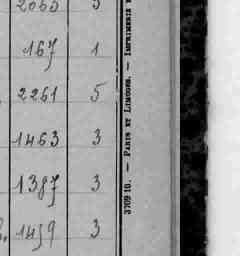 2065 5
167 1
2261 5
1463 3
1387 3
1459 3
37091 0. — PARIS ET LIMOGES. — IMPRIMERIE